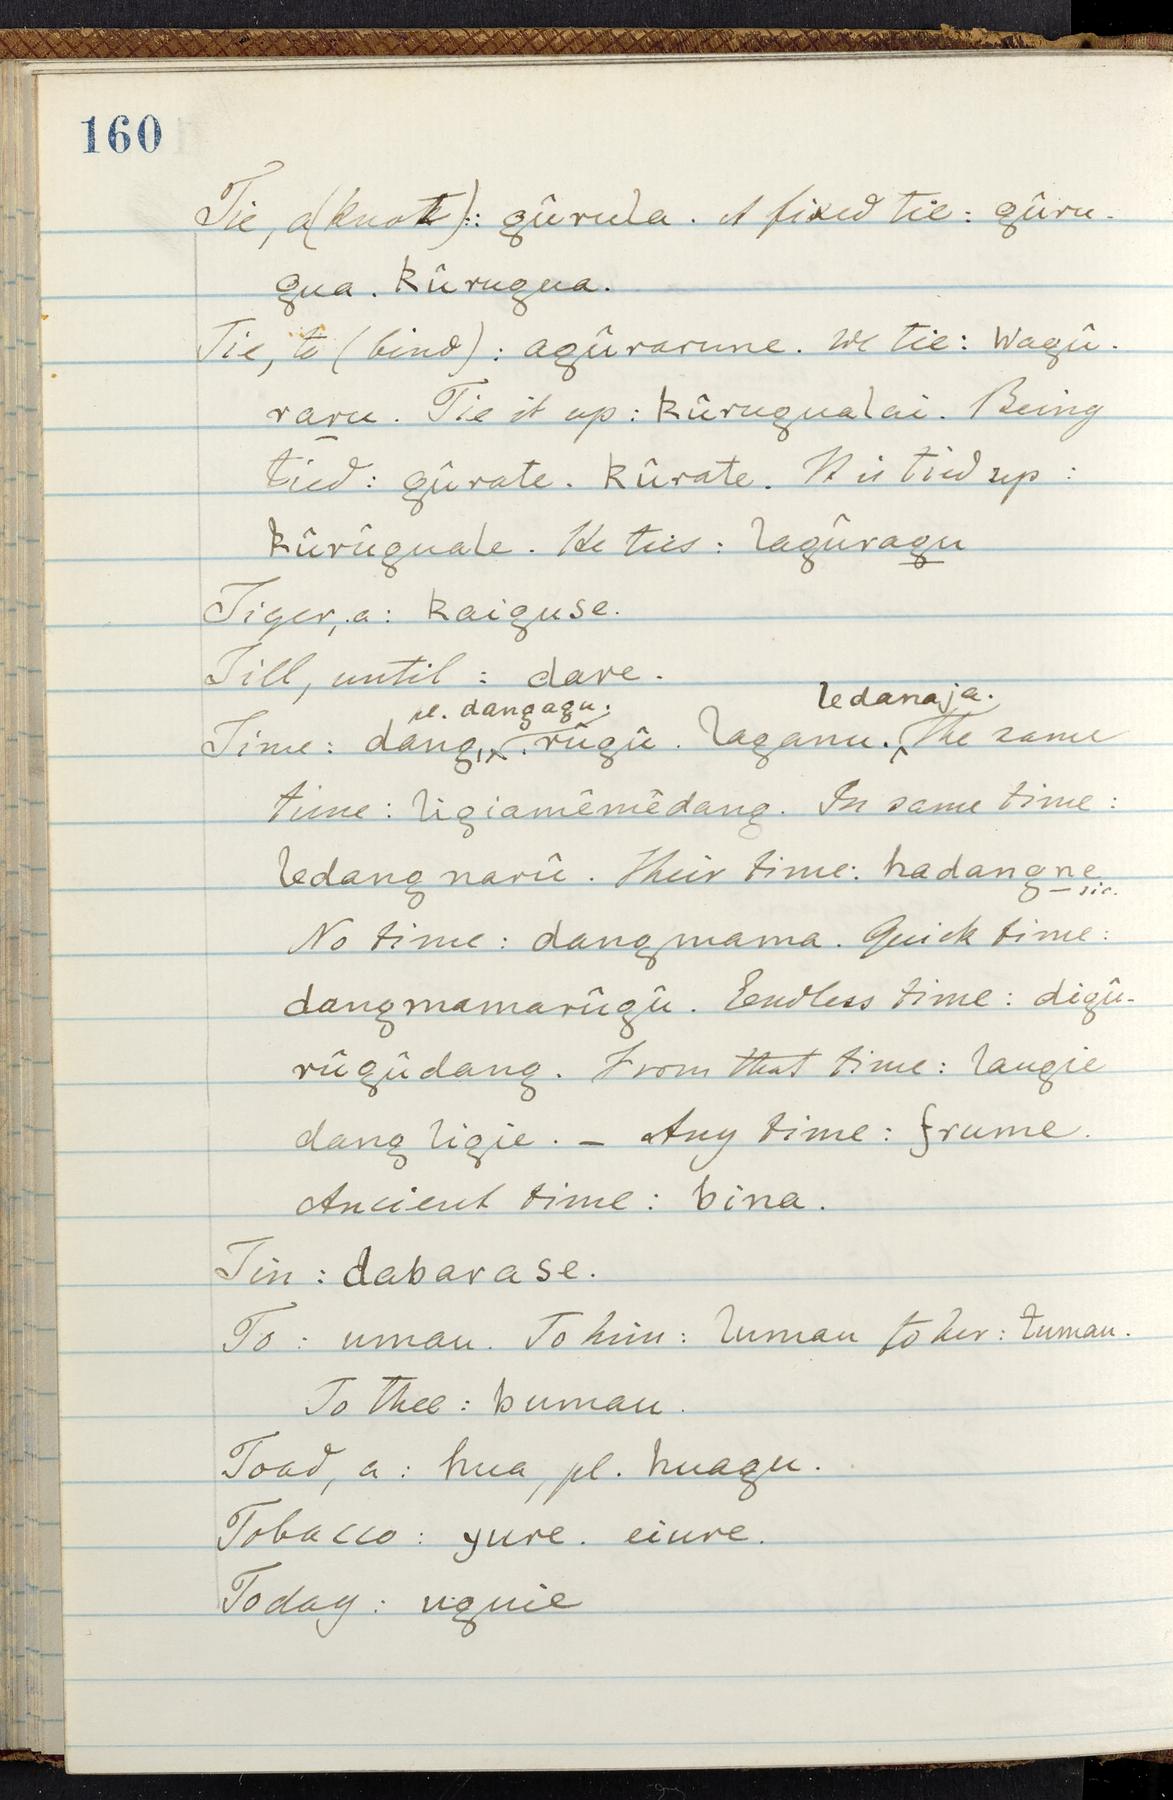 160
Tie, a (knot): gûrula. A fixed tie: gûru-
gua. kûrugua.
Tie, to (bind): agûrarune. We tie: Wagû-
raru. Tie it up: kûrugualai. Being
tied: gûrate. kûrate. It is tied up:
kûrûguale. He ties: lagûragu
Tiger, a: kaiguse.
Till, until: dare.
pl. dangagu. ledanaja.
Time: dang, rûgû. laganu. The same
time: ligiamêmêdang. In same time:
ledang narû. Their time: hadangne
sic.
No time: dangmama. Quick time:
dangmamarûgû. Eendless time: digû-
rûgûdang. From that time: laugie
dang ligie. – Any time: frume.
Ancient time: bina.
Tin: dabarase.
To: uman. To him: luman to her: tuman.
To thee: buman.
Toad, a: hua, pl. huagu.
Tobacco: yure. eiure.
Today: uguie